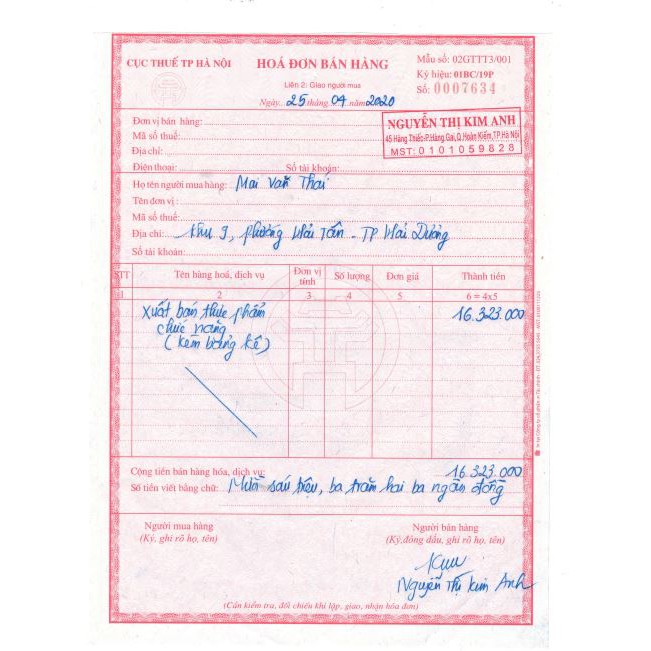 CỤC THUẾ TP HÀ NỘI
HOÁ ĐƠN BÁN HÀNG
Mẫu số: 02GTTT3/001
Ký hiệu: 01BC/19P
Số: 0007634
Liên 2: Giao người mua
Ngày 25 tháng 04 năm 2020
Đơn vị bán hàng:
Mã số thuế:
Địa chỉ:
Điện thoại: Số tài khoản:
NGUYỄN THỊ KIM ANH
45 Hàng Thiếc-P.Hàng Gai,Q.Hoàn Kiếm,TP.Hà Nội
MST: 0101059828
Họ tên người mua hàng: Mai Văn Thai
Tên đơn vị:
Mã số thuế:
Địa chỉ: Khu 9, phường Hải Tân - TP Hải Dương
Số tài khoản:
STT Tên hàng hoá, dịch vụ Đơn vị tính Số lượng Đơn giá Thành tiền
1 2 3 4 5 6 = 4x5
Xuất bán thực phẩm 16.323.000
chức năng
(kèm bảng kê)
Cộng tiền bán hàng hóa, dịch vụ: 16.323.000
Số tiền viết bằng chữ: Mười sáu triệu, ba trăm hai ba ngàn đồng
Người mua hàng
(Ký, ghi rõ họ, tên)
Người bán hàng
(Ký,đóng dấu, ghi rõ họ, tên)
Nguyễn Thị Kim Anh
(Cần kiểm tra, đối chiếu khi lập, giao, nhận hóa đơn)